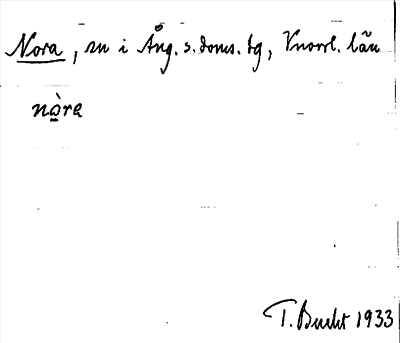 Nora, sn i Ång. s. doms. tg, Vnorrl. län
nòra
T. Bucht 1933